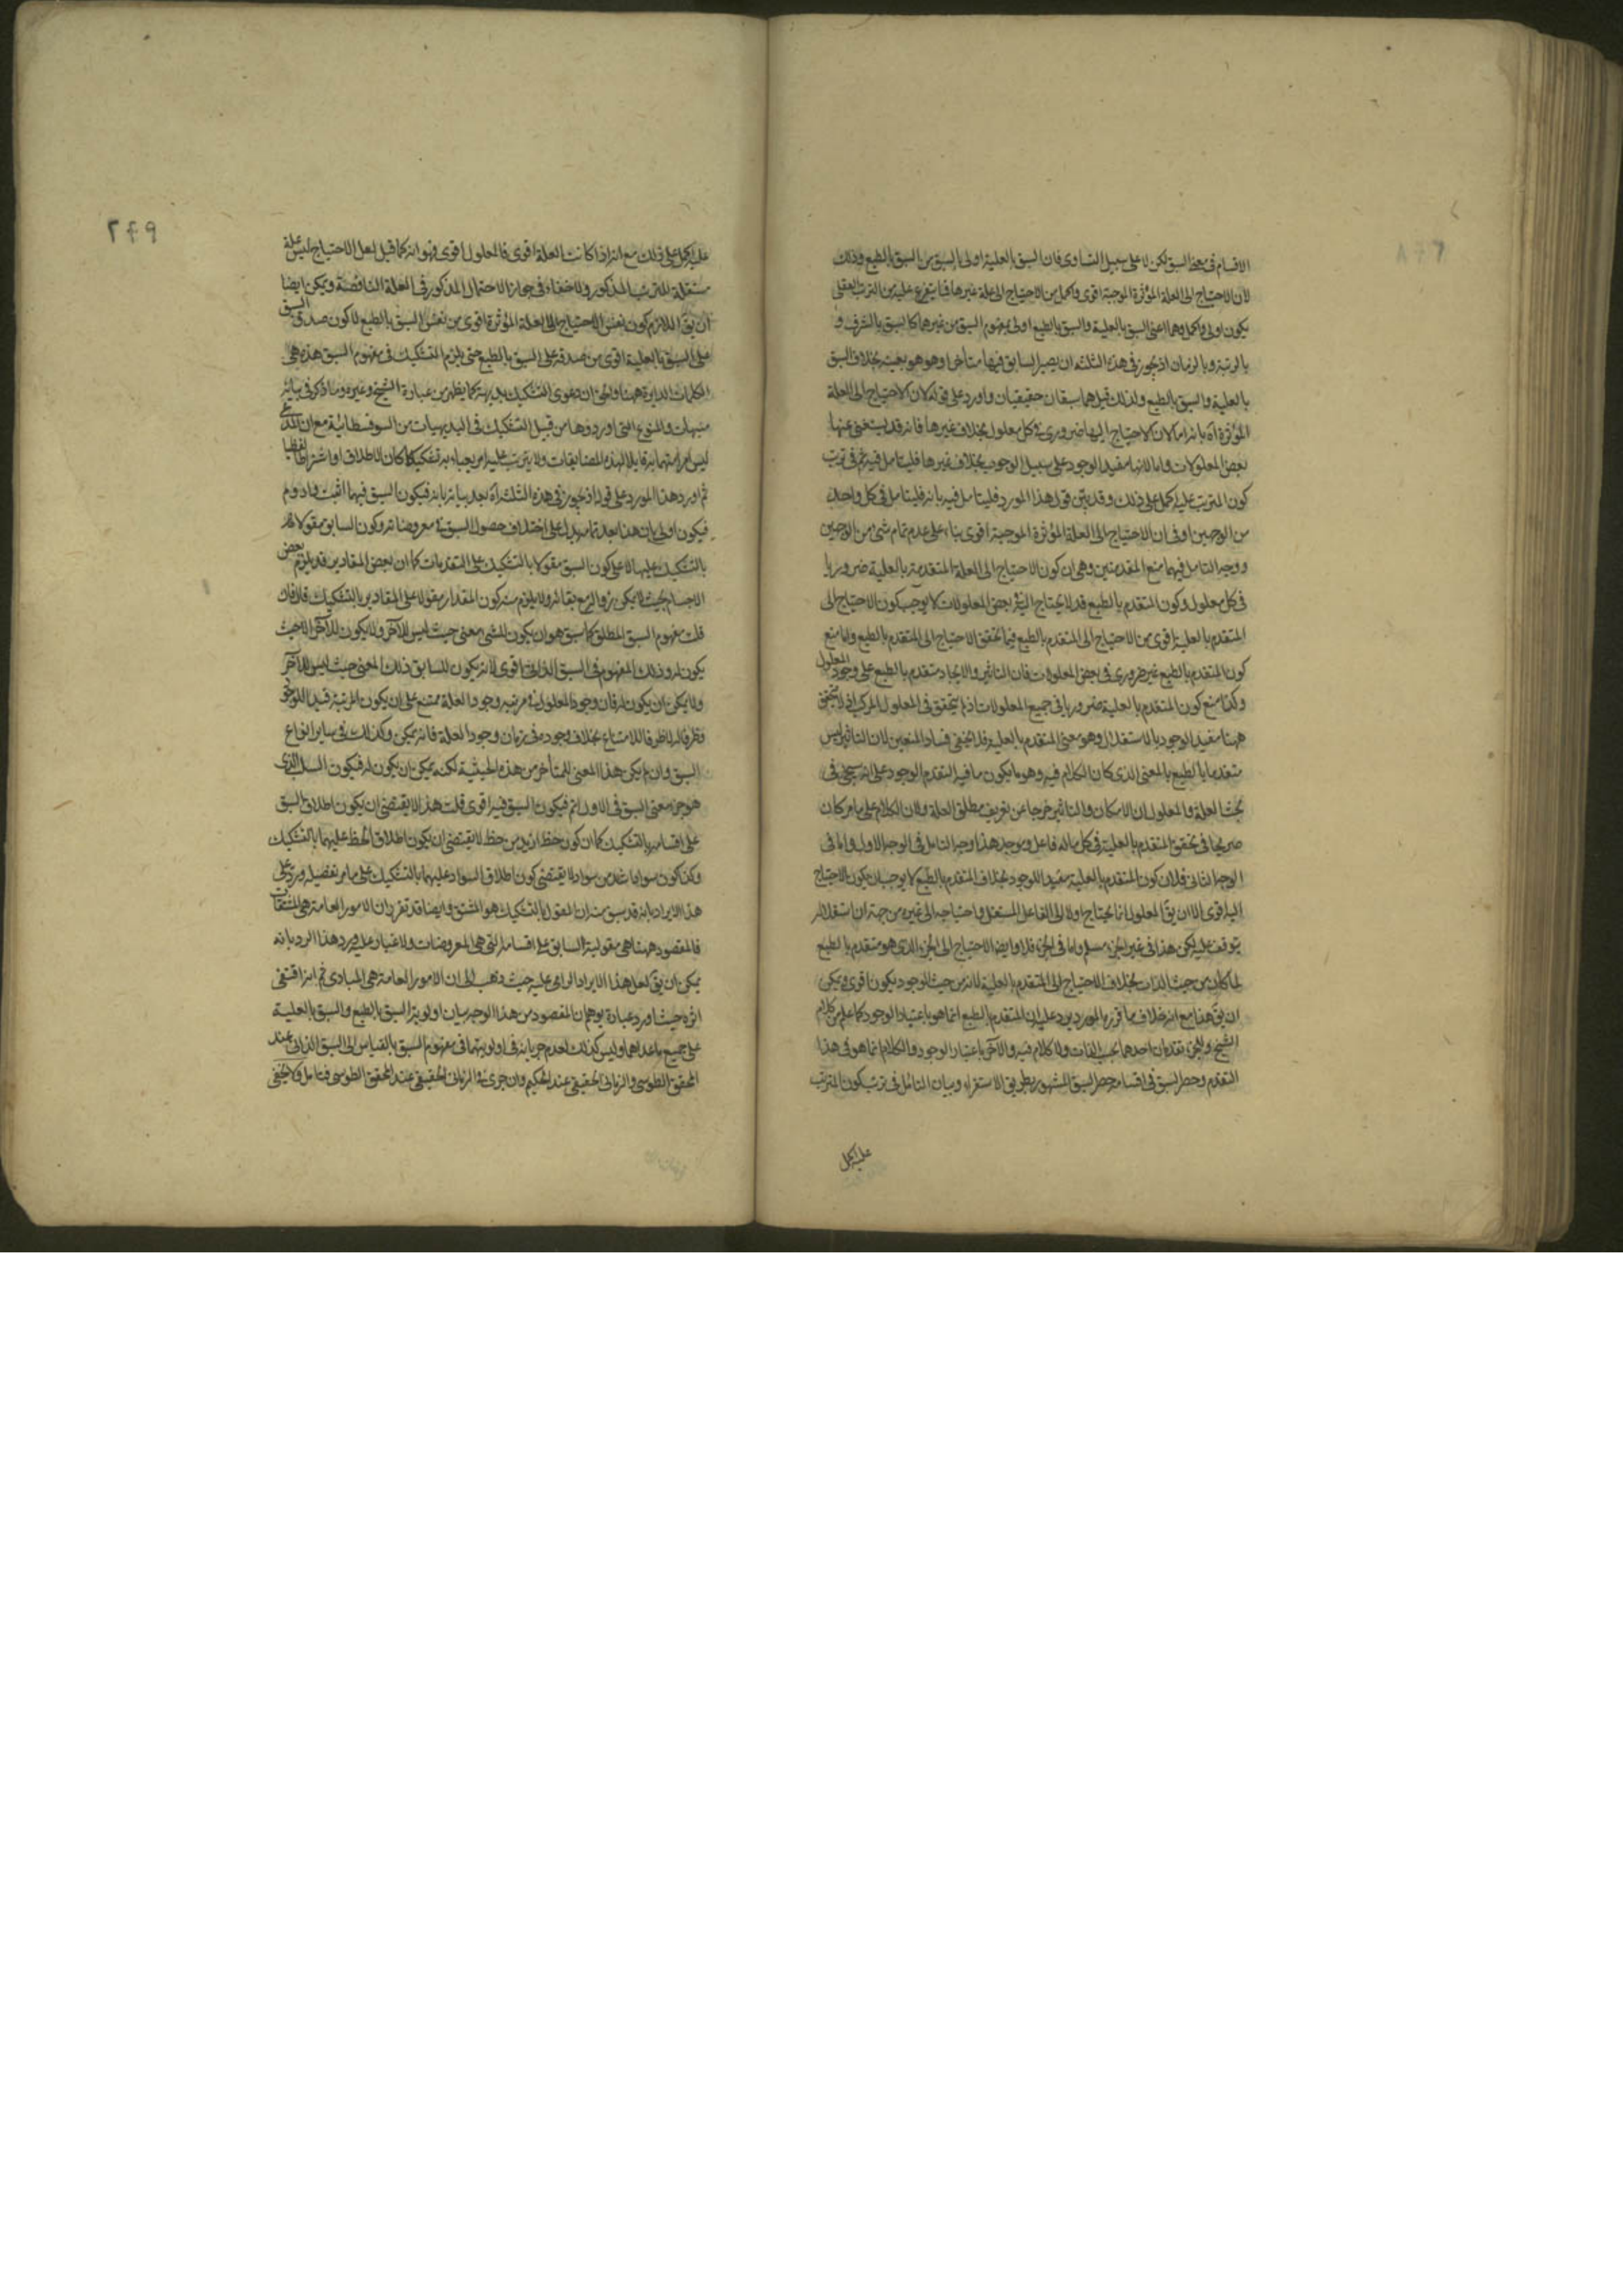 الاقسام فى معنى السبق لكن لا على سبيل التساوى فان السبق بالعلية اولى بالسبق من السبق بالطبع وذلك
لان الاحتياج الى العلة المؤثرة الموجبة اقوى واكمل من الاحتياج الى علة غيرها فما يتفرع عليه من الترتب العقلى
يكون اولى واكمل وهما اعنى السبق بالعلية والسبق بالطبع اولى بمفهوم السبق من غيرهما كالسبق بالشرف و
بالرتبة وبالزمان اذ يجوز فى هذه الثلثة ان يصير السابق فيها متأخرا وهو هو بعينه بخلاف السبق
بالعلية والسبق بالطبع ولذلك قيل هما سبقان حقيقيان واورد على قوله لان الاحتياج الى العلة
المؤثرة آه بانه اما لان الاحتياج اليها ضرورى فى كل معلول بخلاف غيرها فانه قد يستغنى عنها
بعض المعلولات واما لانها مفيد الوجود على سبيل الوجوب بخلاف غيرها فليتامل فيه ثم فى ترتب
كون المترتب عليه اكمل على ذلك وقد بين قول هذا المورد فليتامل فيه بانه فليتامل فى كل واحد
من الوجهين اوفى ان الاحتياج الى العلة المؤثرة الموجبة اقوى بناء على عدم تمام شئ من الوجهين
ووجه التامل فيهما منع المقدمتين وهى ان كون الاحتياج الى العلة المتقدمة بالعلية ضروريا
فى كل معلول وكون المتقدم بالطبع قد لا يحتاج اليه بعض المعلولات لا يوجب كون الاحتياج الى
المتقدم بالعلية اقوى من الاحتياج الى المتقدم بالطبع فيما تحقق الاحتياج الى المتقدم بالطبع واما منع
كون المتقدم بالطبع غير ضرورى فى بعض المعلولات فان التاثير والايجاد متقدم بالطبع على وجود المعلول
وكذا منع كون المتقدم بالعلية ضروريا فى جميع المعلولات اذ لم يتحقق فى المعلول المركب اذ لا يتحقق
ههنا مفيد الوجود بالاستقلال وهو معنى المتقدم بالعلية فلا يخفى فساد المنعين لان التاثير ليس
متقدما بالطبع بالمعنى الذى كان الكلام فيه وهو ما يكون ما فيه التقدم الوجود على انه سيجئ فى
بحث العلة والمعلول ان الامكان والتاثير خرجا عن تعريف مطلق العلة ولان الكلام على ما مر كان
صريحا فى تحقق المتقدم بالعلية فى كل ماله فاعل وموجد هذا وجه التامل فى الوجه الاول واما فى
الوجه الثانى فلان كون المتقدم بالعلية مفيد للوجود بخلاف المتقدم بالطبع لا يوجب ان يكون الاحتياج
اليه اقوى الا ان يقَ المعلول انما يحتاج اولا الى الفاعل المستقل واحتياجه الى غيره من جهة ان استقلاله
يتوقف عليه لكن هذا فى غير الجزء مسلم واما فى الجزء فلا وايضا الاحتياج الى الجزء الذى هو متقدم بالطبع
لما كان من حيث الذات بخلاف الاحتياج الى المتقدم بالعلية لانه من حيث الوجود يكون اقوى ويمكن
ان يقَ هذا مع انه خلاف ما قرره المورد يرد عليه ان المتقدم بالطبع انما هو باعتبار الوجود كما علم من كلام
الشيخ والجزء تقدمان احدهما بحسب الذات ولا كلام فيه والآخر باعتبار الوجود والكلام انما هو فى هذا
التقدم وحصر السبق فى اقسامه حصر السبق المشهور بطريق الاستقراء وبيان التامل فى ترتب كون المترتب
عليه اكمل
٢٦٩
عليه اكمل على ذلك مع انه اذا كانت العلة اقوى فالمعلول اقوى فهو انه كما قيل لعل الاحتياج ليس علة
مستقلة للترتب المذكور ولا خفاء فى جواز الاحتمال المذكور فى العلة الناقصة ويمكن ايضا
ان يقَ اللازم كون نفس الاحتياج الى العلة المؤثرة اقوى من نفس السبق بالطبع لا كون صدق السبق
على السبق بالعلية اقوى من صدقه على السبق بالطبع حتى يلزم التشكيك فى مفهوم السبق هذه هى
الكلمات الدايرة ههنا والحق ان دعوى التشكيك بديهية كما يظهر من عبارة الشيخ وغيره وما ذكر فى بيانه
منبهات والمنوع التى اوردوها من قبيل التشكيك فى البديهيات من السوفسطائية مع ان المدعى
ثم اورد هذا المورد على قوله اذ يجوز فى هذه الثلثة آه بعد بيانه بانه فيكون السبق فيهما اثبت وادوم
فيكون اولى بان هذا بعد تمامه يدل على اختلاف حصول السبق فى معروضاته وكون السابق مقولا
بالتشكيك عليها لا على كون السبق مقولا بالتشكيك على التقدمات كما ان بعض المقادير قد يلزم بعض
الاجسام بحيث لا يمكن زواله مع بقائه ولا يلزم منه كون المقدار مقولا على المقادير بالتشكيك فلا فان
قلت مفهوم السبق المطلق كما سبق هو ان يكون للشئ معنى حيث ليس للآخر ولا يكون للآخر الا حيث
يكون له وذلك المفهوم فى السبق الذاتى اقوى لانه يكون للسابق ذلك المعنى حيث ليس للآخر
ولا يمكن ان يكون له فان وجود المعلول فى مرتبة وجود العلة ممتنع على ان يكون المرتبة قيدا للوجود
وظرفا له لا ظرفا للامتناع بخلاف وجوده فى زمان وجود العلة فانه يمكن وكذلك فى ساير انواع
السبق وان لم يكن هذا المعنى للمتأخر من هذه الحيثية لكنه يمكن ان يكون له فيكون السلب الذى
هو جزء معنى السبق فى الاول اتم فيكون السبق فيه اقوى قلت هذا لا يقتضى ان يكون اطلاق السبق
على اقسامه بالتشكيك كما ان كون حظ ازيد من حظ لا يقتضى ان يكون اطلاق الحظ عليهما بالتشكيك
وكذا كون سواد اشد من سواد لا يقتضى كون اطلاق السواد عليهما بالتشكيك على ما مر تفصيله ورد على
هذا الايراد بانه قد سبق منه ان المقول بالتشكيك هو المشتق وايضا قد تقرر ان الامور العامة هى المشتقات
فالمقصود ههنا هى مقولية السابق على اقسامه التى هى المعروضات ولا غبار عليه ويرد هذا الرد بانه
يمكن ان يقَ لعل هذا الايراد الزامى عليه حيث ذهب الى ان الامور العامة هى المبادى ثم انه اقتفى
اثره حيث اورد عبارة يوهم ان المقصود من هذا الوجه بيان اولوية السبق بالطبع والسبق بالعلية
على جميع ما عداهما وليس كذلك لعدم جريانه فى اولويتهما فى مفهوم السبق بالقياس الى السبق الذاتى عند
المحقق الطوسى والزمانى الحقيقى عند الحكيم وان جرى فى الزمان الحقيقى عند المحقق الطوسى فتامل ولا يخفى